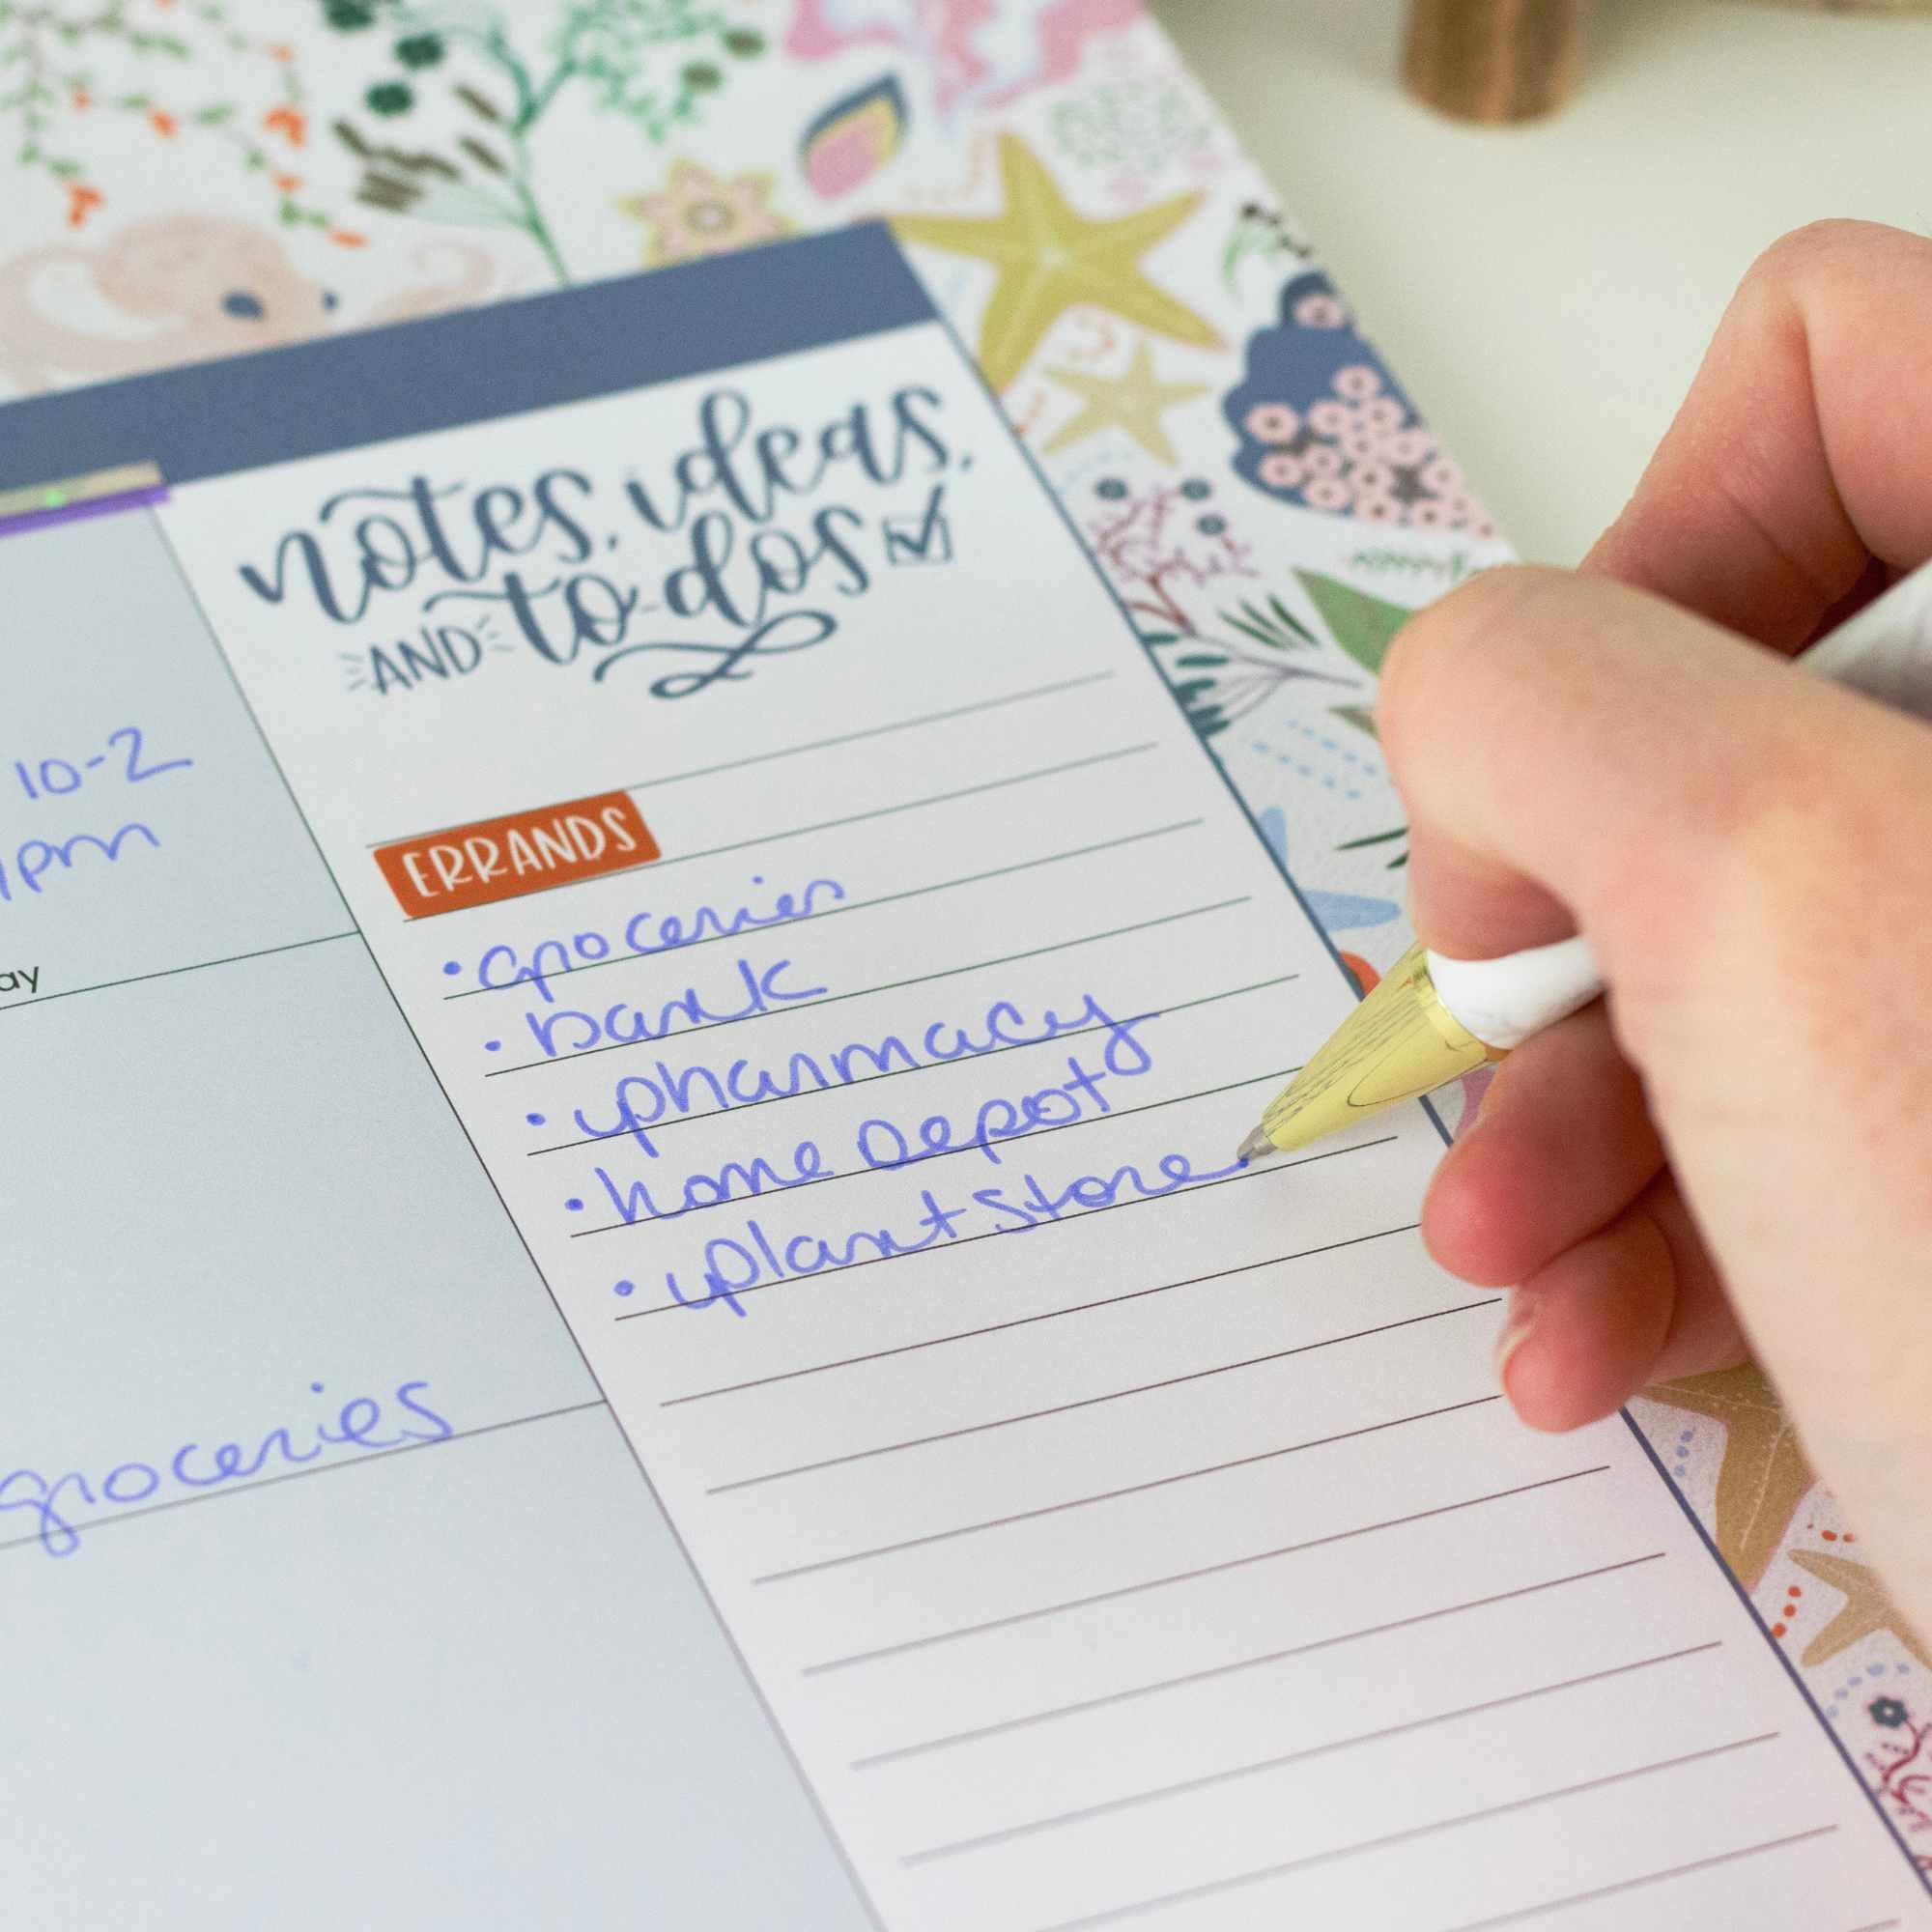 notes, ideas,
AND to-dos
ERRANDS
• groceries
• bank
• pharmacy
• home Depot
• plant store
10-2
1pm
ay
groceries